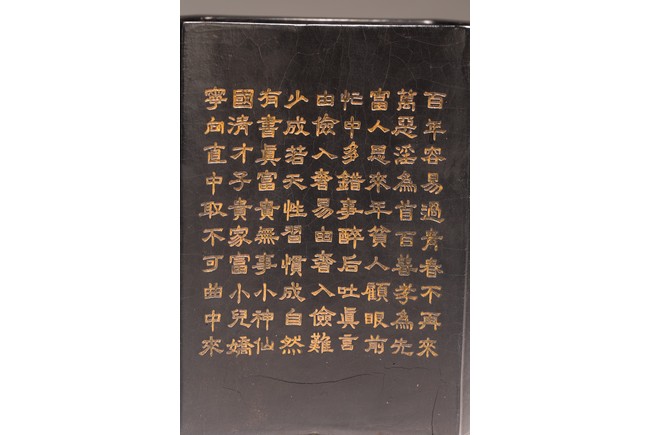 百年容易過青春不再來
萬惡淫為首百善孝為先
富人思來年貧人顧眼前
忙中多錯事醉后吐真言
由儉入奢易由奢入儉難
少成若天性習慣成自然
有書真富貴無事小神仙
國清才子貴家富小兒嬌
寧向直中取不可曲中來